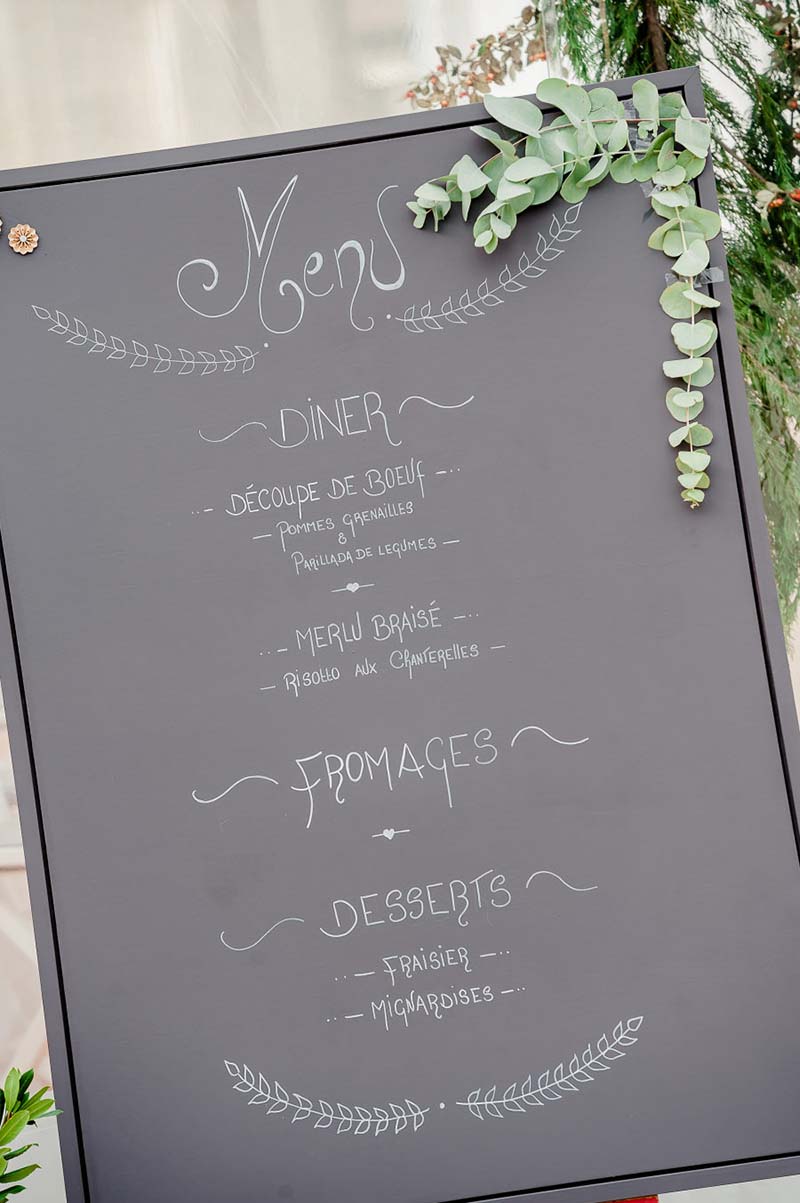 Menu
DINER
DÉCOUPE DE BOEUF
POMMES GRENAILLES
&
PARILLADA DE LEGUMES
MERLU BRAISÉ
RISOTTO AUX CHANTERELLES
FROMAGES
DESSERTS
FRAISIER
MIGNARDISES